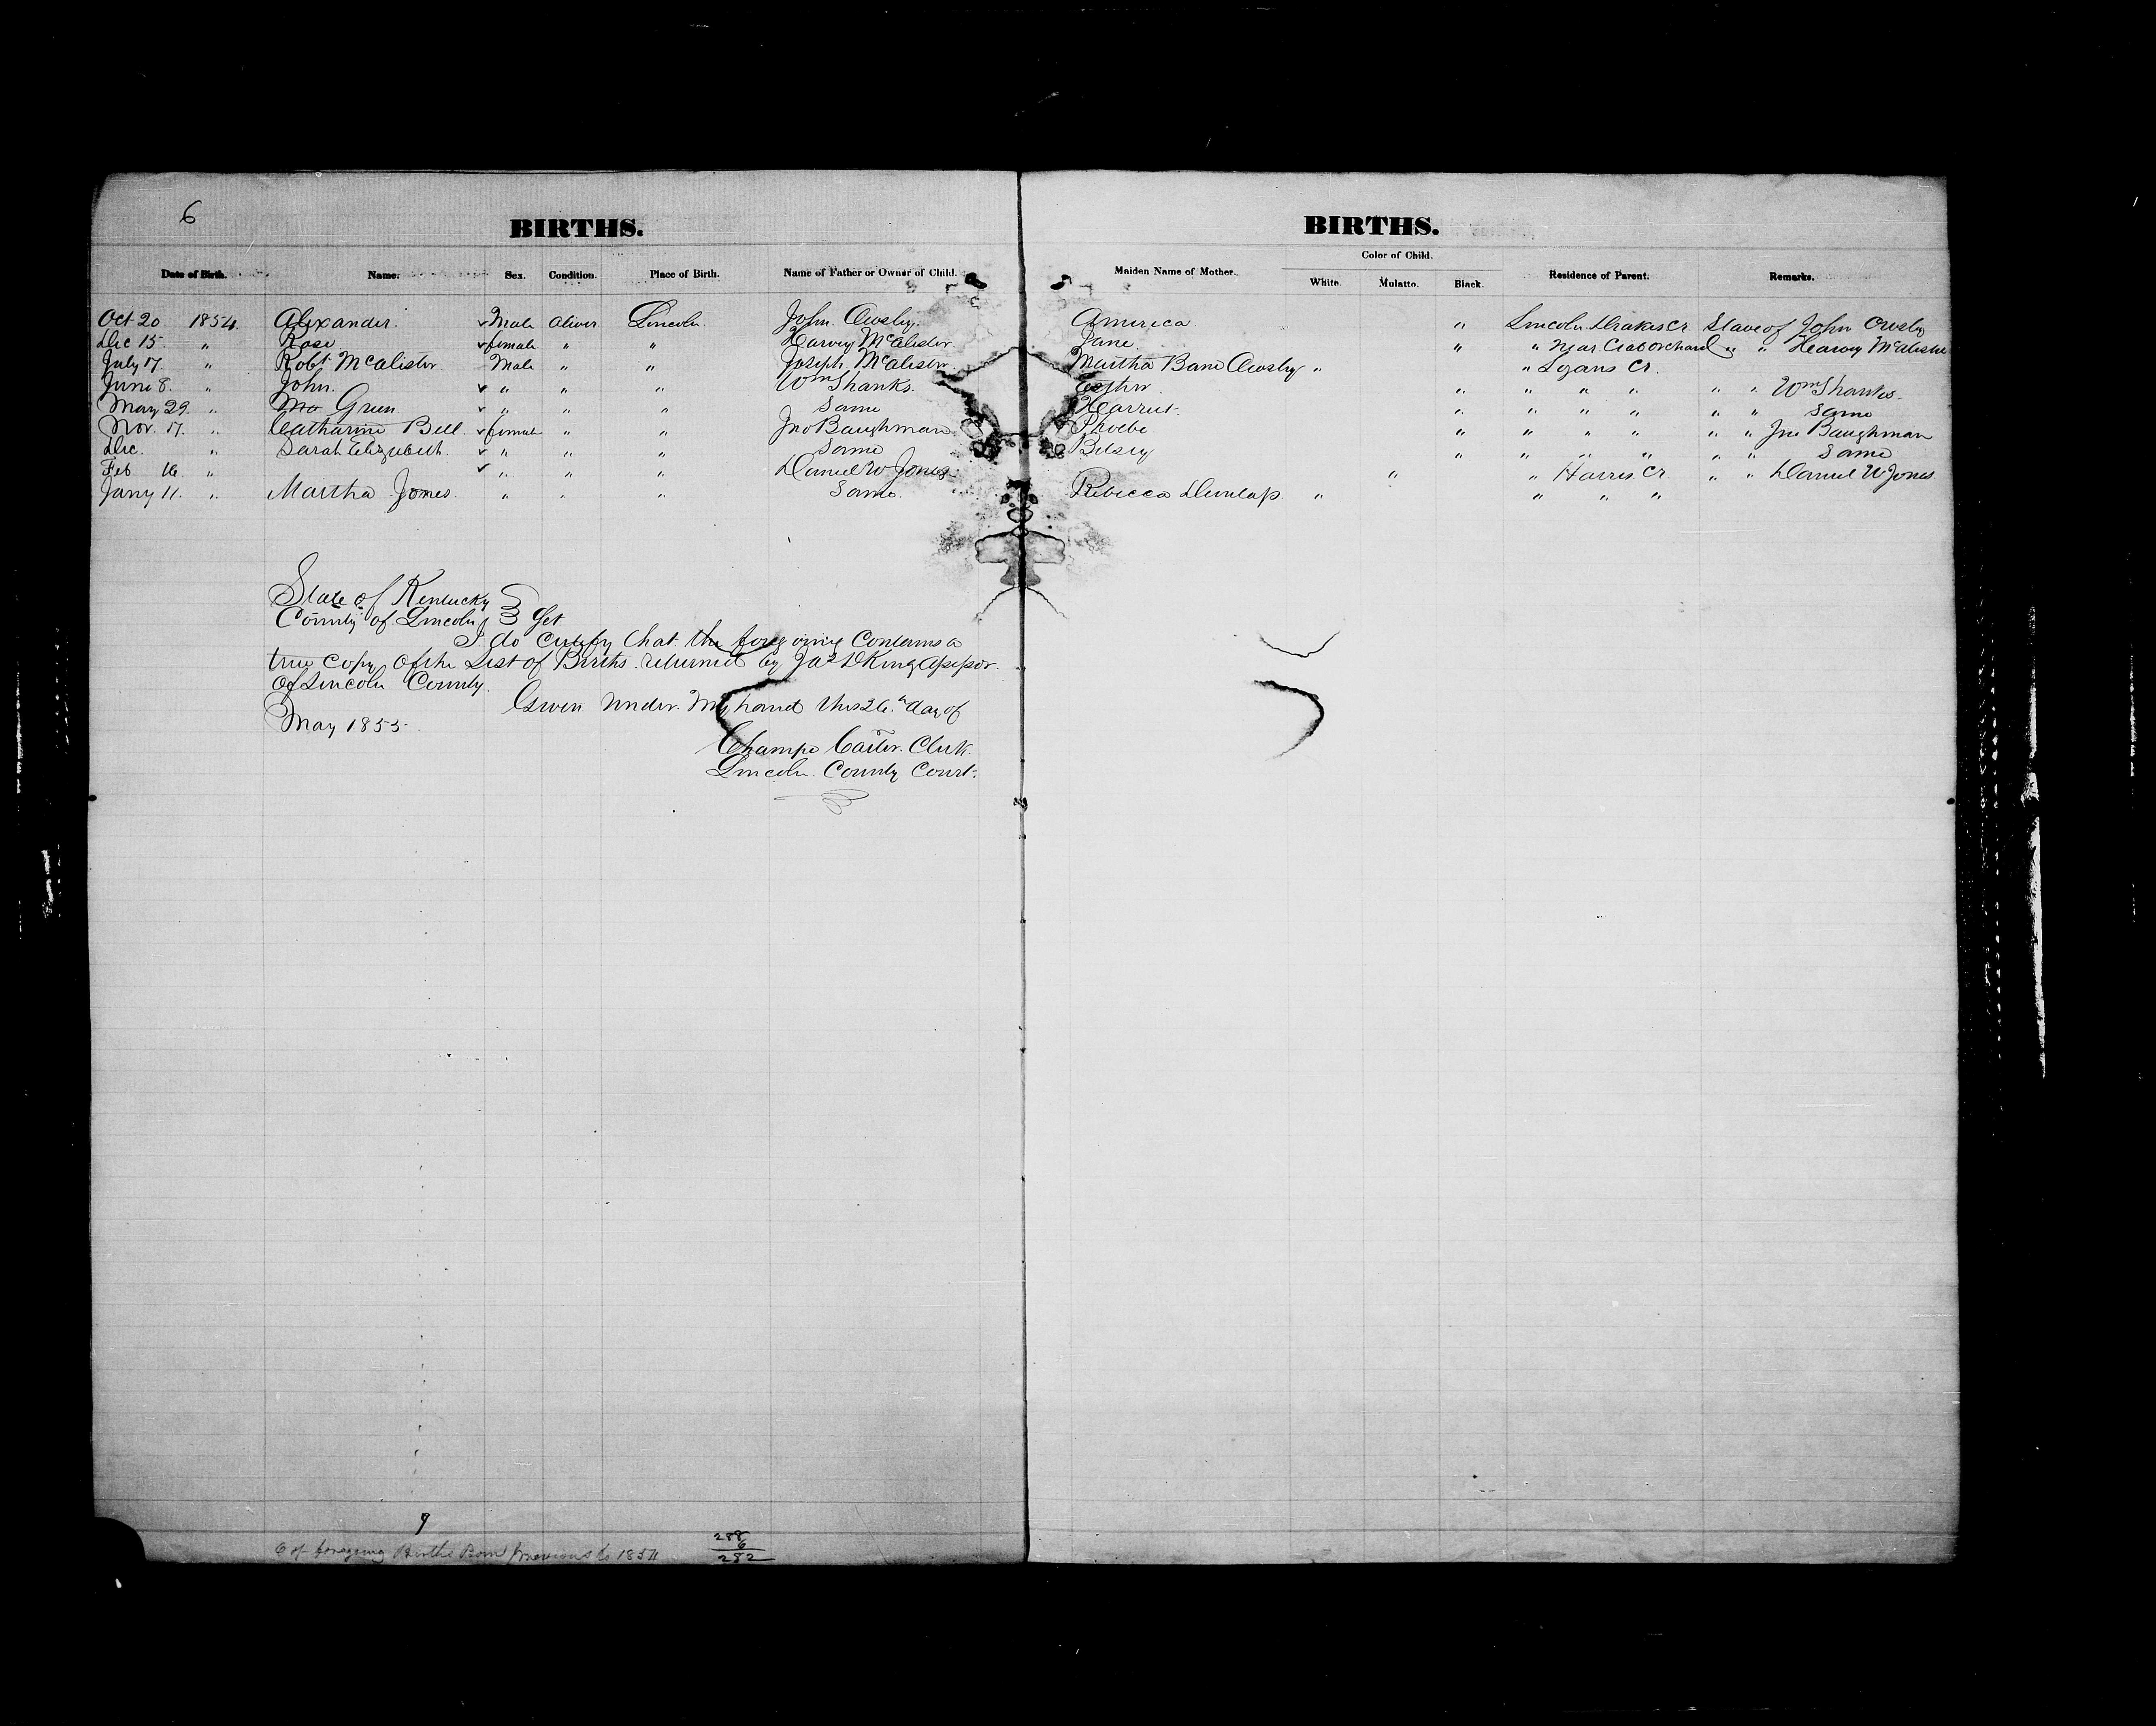 6
BIRTHS. BIRTHS.
Date of Birth. Name. Sex. Condition. Place of Birth. Name of Father or Owner of Child. Maiden Name of Mother. Color of Child. White. Mulatto. Black. Residence of Parent. Remarks.
Oct 20 1854 Alexander. ✓ Male Alive Lincoln. John Owsley. America " Lincoln Drakes Cr. Slave of John Owsley
Dec 15 " Rose ✓ female " " Harvey McAlister Jane " " near Crab Orchard " " Harvey McAlister
July 17. " Robt McAlister Male " " Joseph McAlister. Martha Bane Owsley " " Logans Cr.
June 8. " John. ✓ " " " Wm Shanks. Esther " " " " " " Wm Shanks.
May 29. " Green ✓ " " " Same Harriet. " " " " " " Same
Nov. 17. " Catharine Bell. ✓ female " " Jno Baughman Phoebe " " " " " " Jno Baughman
Dec. " Sarah Elizabeth. ✓ " " " Same Betsey " " " " " " Same
Feb 16 " ✓ " " " Daniel W Jones. " " Harris Cr. " " Daniel W Jones
Jany 11. " Martha Jones " " " Same. Rebecca Dunlap. " " " "
State of Kentucky
County of Lincoln Sct
I do certify that the foregoing contains a
true copy of the List of Births returned by Jas D King Assessor
of Lincoln County.
Given under my hand this 26th day of
May 1855.
Champe Carter. Clerk
Lincoln County Court.
9
6 of foregoing Births Born previous to 1854
288
6
282